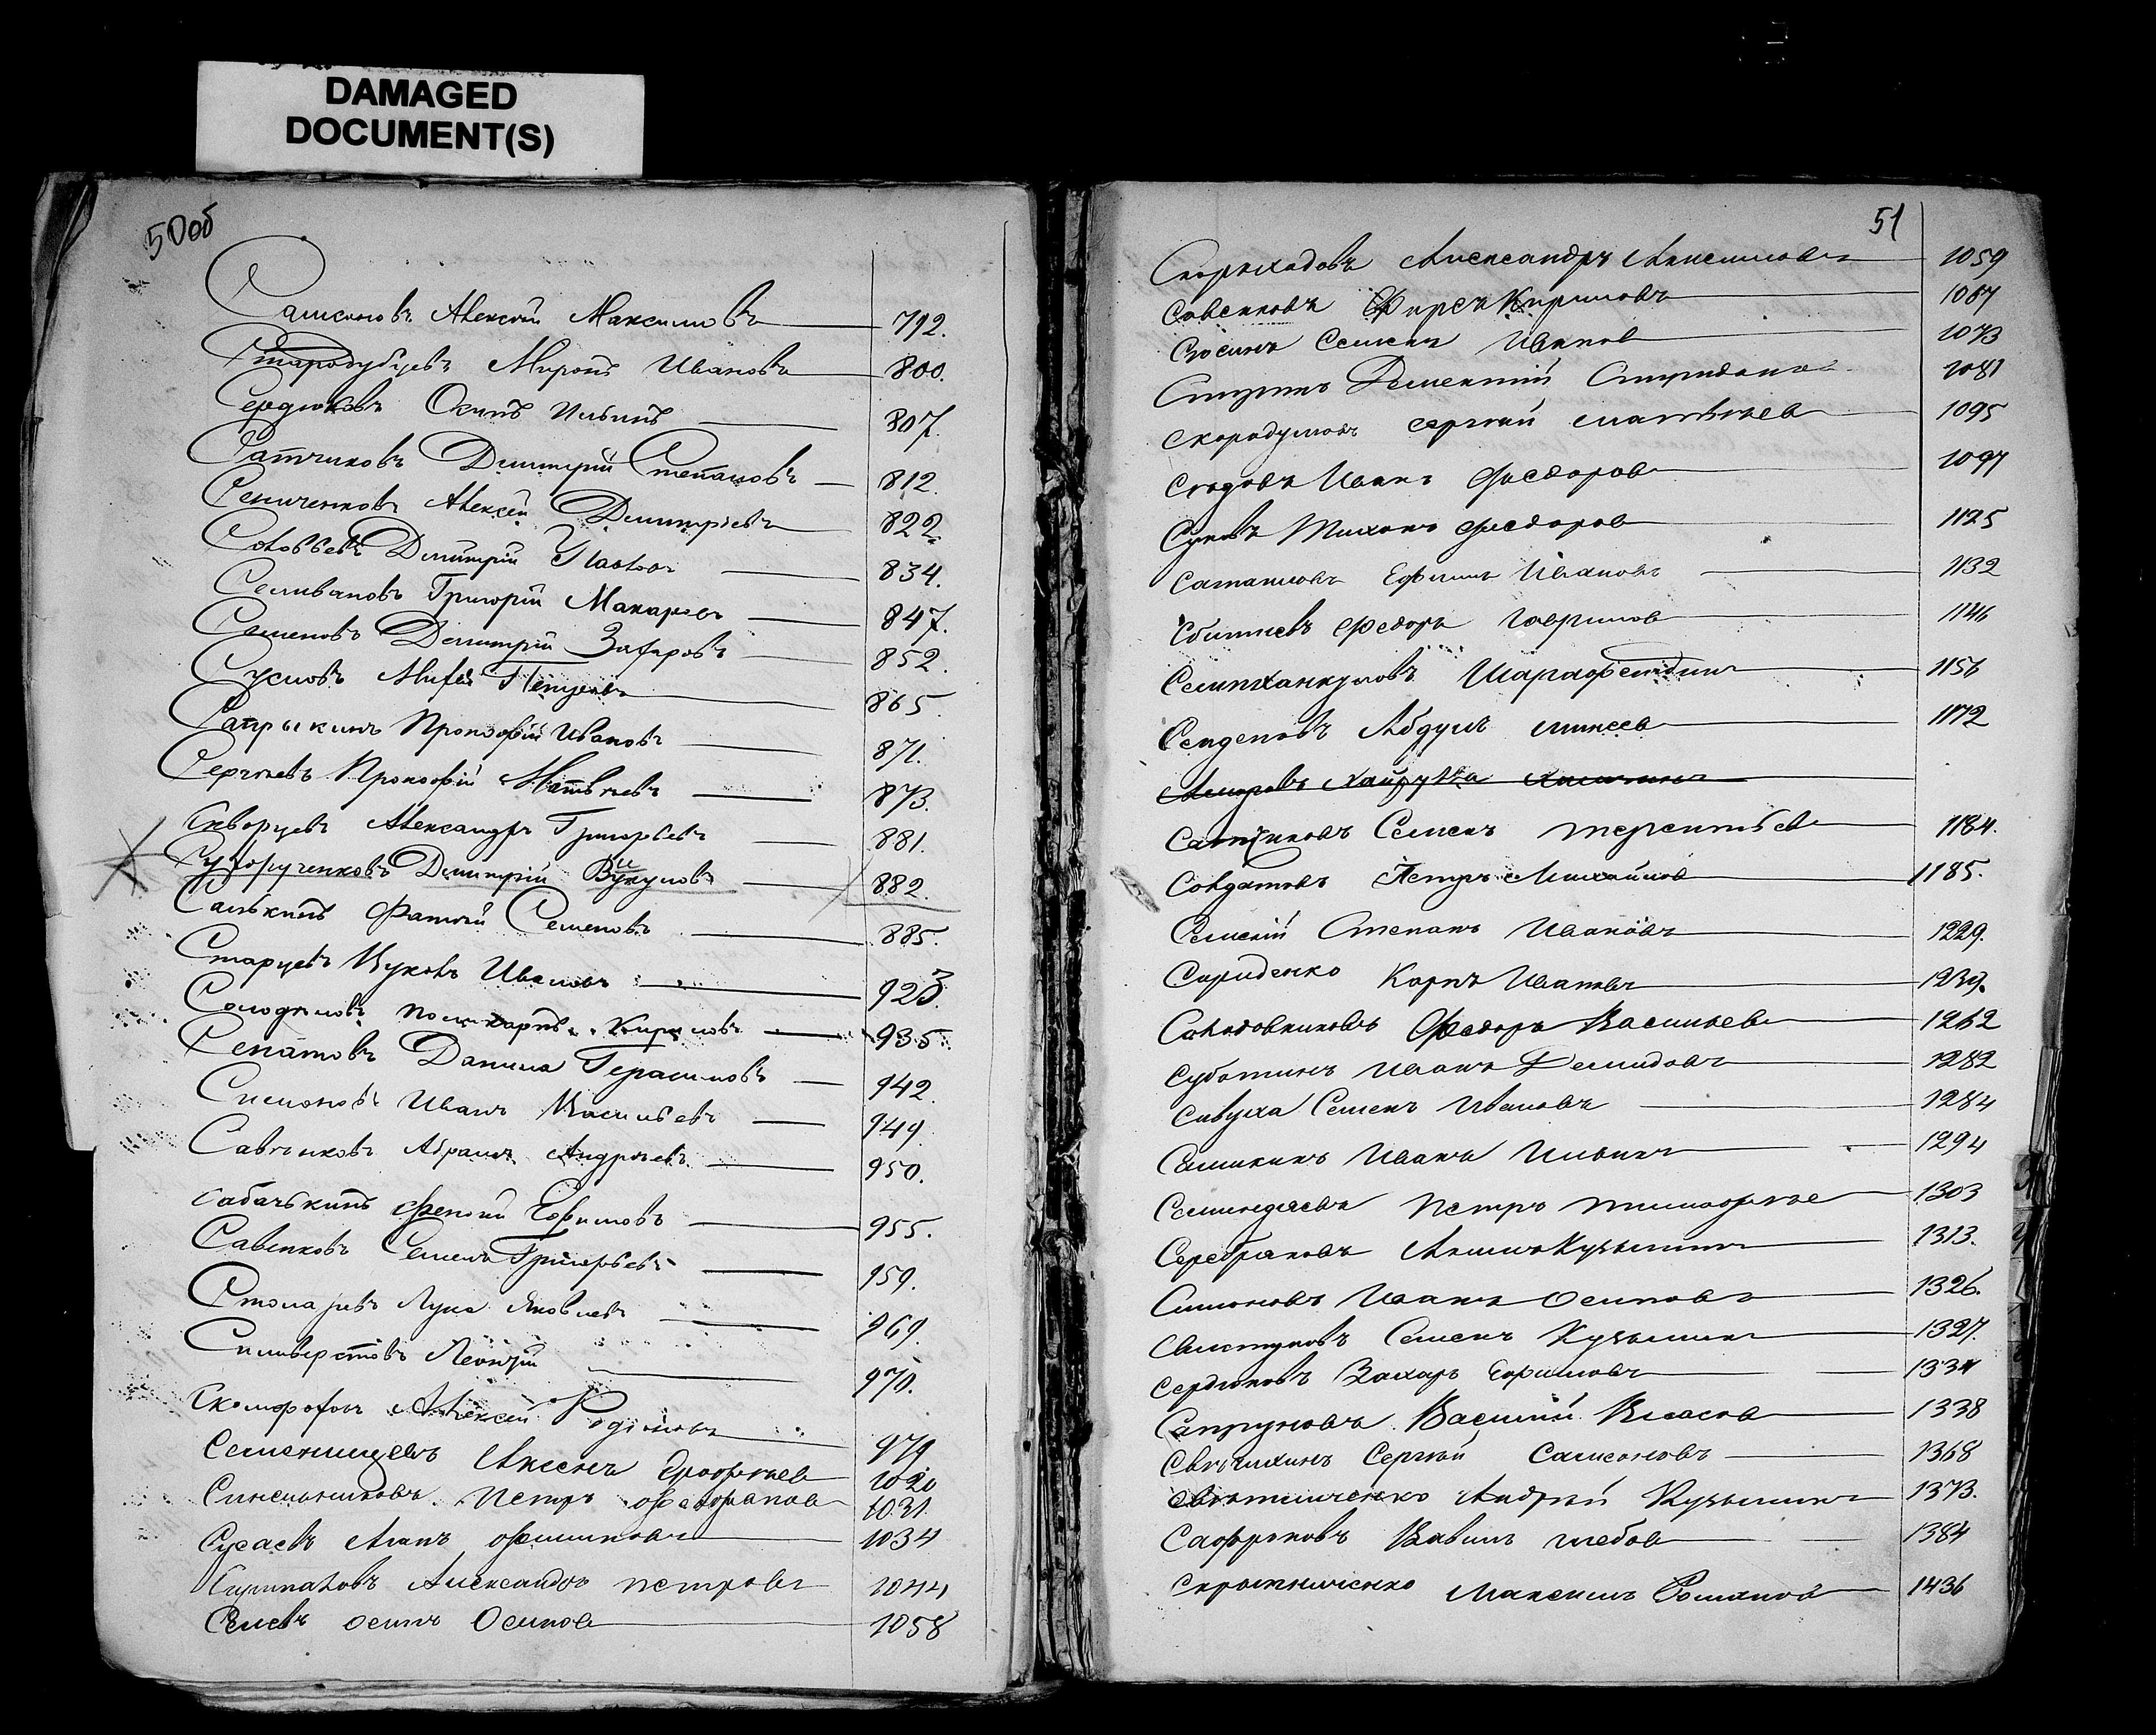 DAMAGED
DOCUMENT(S)
50об
Самсоновъ Алексѣй Максимовъ 792.
Стародубцевъ Миронъ Ивановъ 800.
Сердюковъ Осипъ Ильинъ 807.
Сатчиковъ Димитрій Степановъ 812.
Сениченковъ Алексѣй Димитріевъ 822.
Соловьевъ Димитрій 834.
Селивановъ Григорій Макаровъ 847.
Семеновъ Димитрій Захаровъ 852.
Сусловъ Петровъ 865.
Сапрыкинъ Прокофій Ивановъ 871.
Сергѣевъ Прокофій Матвѣевъ 873.
Скворцевъ Александръ Григорьевъ 881.
Сухорученковъ Димитрій Викуловъ 882.
Салькинъ Фатѣй Семеновъ 885.
Старцевъ Вуколъ Ивановъ 923.
Солодиловъ Поликарпъ Кириловъ 935.
Сенатовъ Данила Герасимовъ 942.
Симоновъ Иванъ Васильевъ 949
Савѣнковъ Абрамъ Андреевъ 950.
Сабачькинъ Ефимовъ 955.
Савенковъ Семенъ Григорьевъ 959.
Столяревъ Лука Яковлевъ 969.
Силиверстовъ Леонтій 970.
Скоморохов Алексѣй Родіоновъ 979
Семенищевъ Аксенъ Ерофѣев 1020
Синельниковъ Петръ 1031.
Сусаевъ 1034
Александръ Петровъ 1044
Осипъ Осипов 1058
51
Скороходовъ Александръ Анисимовъ 1059
Савенковъ Фирсъ Кириловъ 1067
Зосимъ Семенъ Иванов 1073
Дементій Спиридонов 1081
Скородумовъ Сергѣй Матвѣев 1095
Сѣдовъ Иванъ Федоров 1097
Суковъ Тихонъ Федоров 1125
Ефимъ Ивановъ 1132
Сбитневъ Федоръ Гаврилов 1146
Шарафетдин 1156
Абдулъ 1172
Сотниковъ Семенъ Терентьев 1184.
Солдатовъ Петръ Михайлов 1185.
Семскій Степанъ Ивановъ 1229.
Свириденко Карпъ Ивановъ 1239.
Солодовниковъ Федоръ Васильев 1262
Суботинъ Иванъ Демидовъ 1282
Сивуха Семенъ Ивановъ 1284
Сишкинъ Иванъ Ильинъ 1294
Петръ Тимофѣев 1303
Серебряковъ Акимъ Кузьминъ 1313.
Симоновъ Иванъ Осиповъ 1326.
Свистуновъ Семенъ Кузьминъ 1327.
Сердюковъ Захаръ Ефимовъ 1334
Сапруновъ Василій Власов 1338
Свѣчихинъ Сергѣй Самсоновъ 1368
Андрей Кузьминъ 1373.
Сафроновъ Вавилъ Глебов 1384
Скрытниченко Максимъ Романов 1436